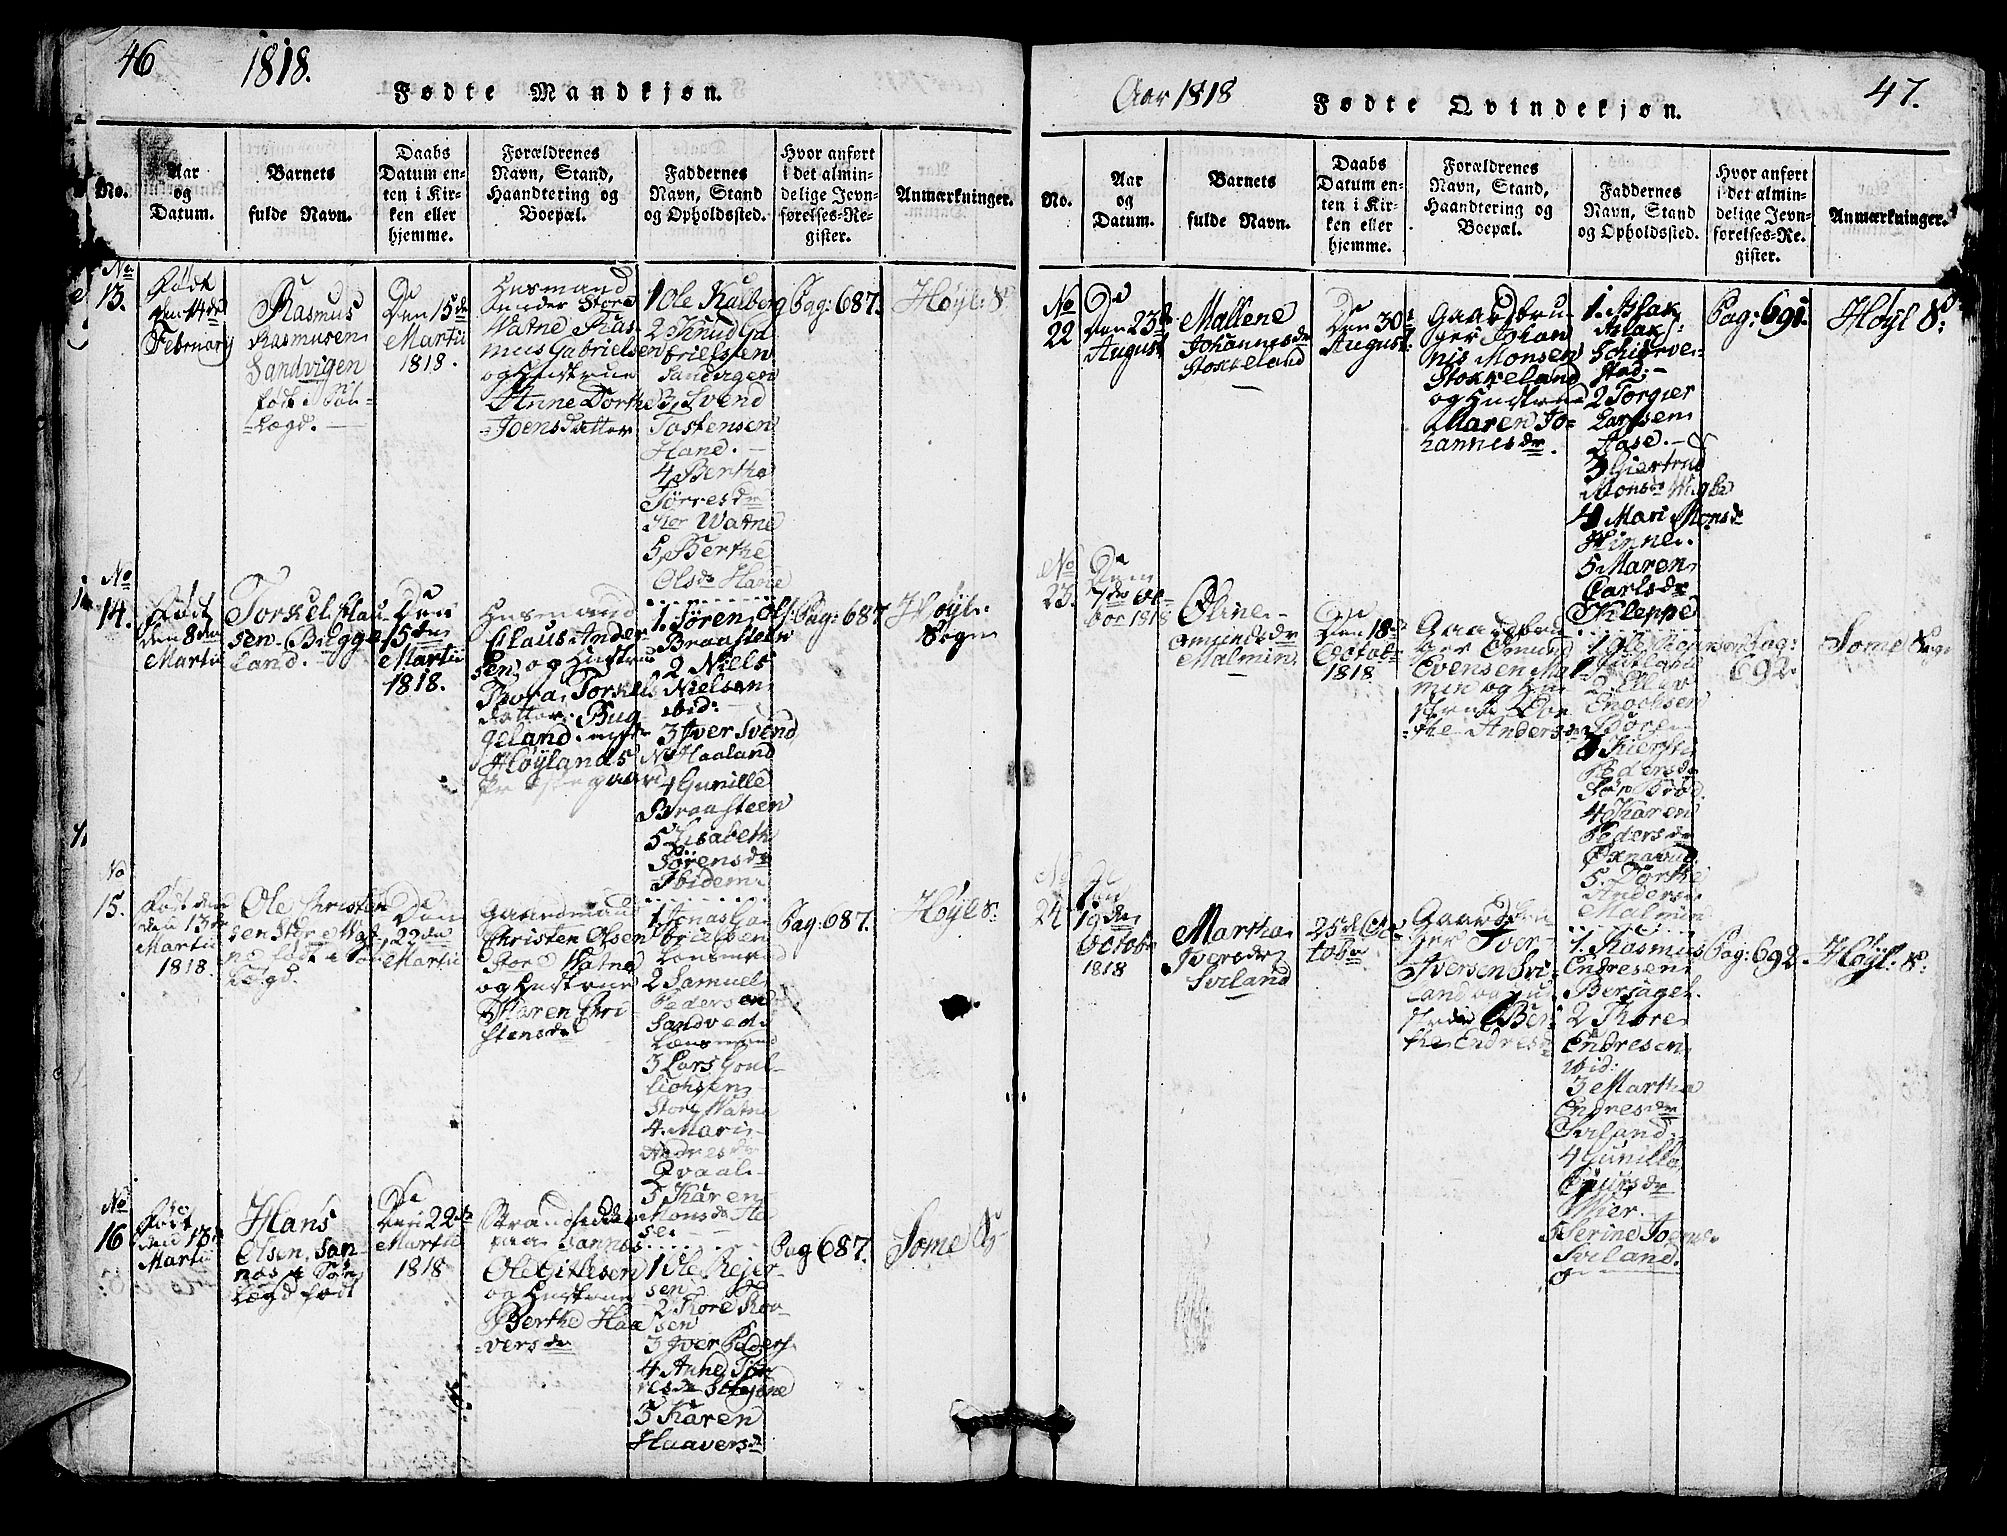 46
1818.
Fødte Mandkjøn.
No.
Aar
og
Datum.
Barnets
fulde Navn.
Daabs
Datum en-
ten i Kir-
ken eller
hjemme.
Forældrenes
Navn, Stand,
Haandtering og
Boepæl.
Faddernes
Navn, Stand
og Opholdssted.
Hvor anført
i det almin-
delige Jevn-
førelses-Re-
gister.
Anmærkninger.
No
13.
Født
den 14de
February
Rasmus
Rasmusen
Sandvigen
født i
Lægd.
Den 15de
Martii
1818.
Huusmand
under Store
Watne Ras
mus Gabrielsen
og Hustrue
Anne Dorthe
Joensdatter
1 Ole Kalberg
2 Knud Ga
brielsen
Sandvigen
3 Svend
Tostensen
Hane.
4 Berthe
Tørresdr
stor Watne
5 Berthe
Olsdr Hane
Pag: 687.
Høyl: S
No
14.
Født
den 8den
Martii
Torkel Klau
sen Bugge
land.
Den
15den
Martii
1818.
Huusmand
Claus Ander
sen og Hustrue
Thora Torkels
datter Bug
geland
Høylands
Præstegaard
1. Søren Ols:
Braasteen
2 Niels
Nielsen
ibid:
3 Iver Svend
Haaland
4 Gunille
Braasteen
5 Lisabeth
Sørensdr
Ibidem
Pag: 687
Høyl:
Sogn
No
15.
Født den
13de
Martii
1818.
Ole Christen
sen Store Wat
ne født i
Lægd.
Den
22de
Martii
Gaardmand
Christen Olsen
Store Watne
og Hustrue
Maren Chri
stensdr
1 Jonas Ga
brielsen
Lensmand
2 Samuel
Pedersen
Sandved
Lænsmand
3 Lars
Store Watne
4. Maris
Andresdr
Qvaale
5 Karen
Monsdr
Pag: 687.
Høyl S:
No
16
Født
den 13de
Martii
Hans
Olsen San
nes i
Lægd født
Den 22de
Martii
1818
Strandsidder
paa Sannes
Ole Gitlesen
og Hustrue
Berthe Haa
versdr
1 Ole Rejer
sen
2 Tore
sen
3 Iver Peders
4 Anne Tør
resdr
5 Karen
Haaversdr
Pag 687.
Some S
Aar 1818
Fødte Qvindekjøn.
47.
No.
Aar
og
Datum.
Barnets
fulde Navn.
Daabs
Datum en-
ten i Kir-
ken eller
hjemme.
Forældrenes
Navn, Stand,
Haandtering og
Boepæl.
Faddernes
Navn, Stand
og Opholdssted.
Hvor anført
i det almin-
delige Jevn-
førelses-Re-
gister.
Anmærkninger.
No
22
Den 23de
August
Mallene
Johannesdr
Stokkeland
Den 30te
August
Gaardbru
ger Johan
nis Monsen
Stokkeland
og Hustrue
Maren Jo-
hannesdr.
1. Aslak
Aslaks:
Schieve
stad:
2 Torgier
Larssen
Aase.
3 Giertrud
Monsdr
4 Mari Monsdr
Hinne.
5 Maren
Carlsdr
Kleppe
Pag: 691.
Høyl S:
No
23.
Den
7de Oc
tobr 1818
Oline
Omundsdr
Malmin.
Den 18de
Octobr
1818
Gaardbru
ger Omund
Evensen Mal
min og Hu
strue Dor
the Andersdr
2 Eller
Enochsen
3 Kiersti
Pedersdr
4 Karen
Pedersdr
5. Dorthe
Andersdr
Malmin
Pag:
692.
Some Sogn
No
24.
Den
19den
Octobr
1818
Martha
Iversdr
Sviland
25de Oc
tober
Gaardbru
ger Iver
Iversen Svi
land og Hu
strue Ber
the Endresdr
1. Rasmus
Endresen
Bersagel.
2 Tore
Endresen
ibid:
3 Martha
Endresdr
Sviland.
4 Gunilla
5 Serine Joensdr
Sviland.
Pag: 692.
Høyl: S: